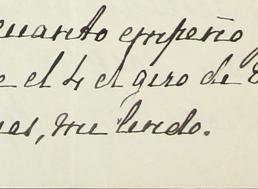 cuanto empeño
e el 4 el giro de
mi lindo.